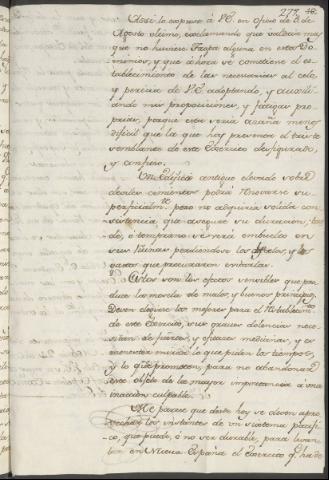 277 48.
Assi lo expuse à V.E. en oficio de 8. de
Agosto ultimo, exclamando que valdria mas
que no huviese Tropa alguna en estos Do-
minios, y que àhora se comotiese el es-
tablecimiento de las necesarias al celo,
y pericia de V.E. adoptando, y auxili-
ando mis proposiciones, y fatigas pro-
pias, porque esta seria azaña menos
dificil que la que hay presente el triste
semblante de este Exercito desfigurado,
y confuso.
Un edificio antiguo elevado sobre
deviles cimientos podrà renovarse su-
perficialmte. pero no adquirirà solida con-
sistencia que asegure su duracion, tar-
de, ò temprano se verà embuelto en
sus Ruinas perdiendose los
gastos que procuraron evitarlas.
Estos son los efectos sensibles que pro-
duce la mezcla de malos, y buenos principios.
Deven elegirse los mejores para el Establecimto.
de este Exercito, sus graves dolencias nece-
sitan de fuertes, y eficaces medicinas, y es
menester mirar lo que piden los tiempos,
y lo que prometen, para no abandonar
este objeto de la mayor importancia à una
inaccion culpable.
Me parece que desde hoy se deven apro-
vechar los instantes de un sistema pacifi-
co, que puede, ò no ser durable, para levan-
tar en Nueva España el Exercito q. ha de